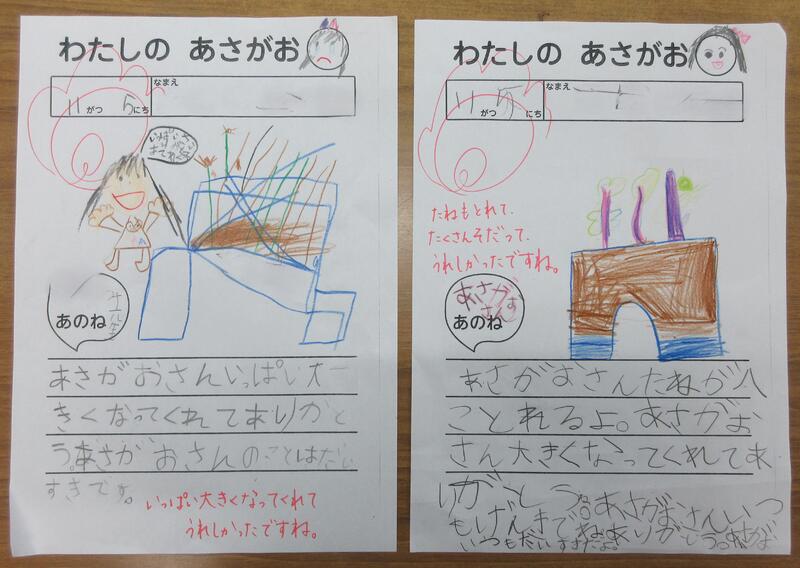 わたしの あさがお
11 がつ 5 にち
なまえ
あのね
あさがおさんいっぱい大
きくなってくれてありがと
う。あさがおさんのことはだい
すきです。
いっぱい大きくなってくれて
うれしかったですね。
わたしの あさがお
11 がつ にち
なまえ
たねもとれて、
たくさんそだって、
うれしかったですね。
あさがお
さん
あのね
あさがおさんたねが八
ことれるよ。あさがお
さん大きくなってくれてあ
りがとう。あさがおさんいつ
もげんきでねありがとう。あさがお
いつもだいすきだよ。